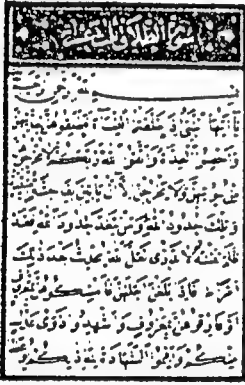 سورة الطلاق
بسم الله الرحمن الرحيم
يا أيها النبي إذا طلقتم النساء فطلقوهن لعدتهن
وأحصوا العدة واتقوا الله ربكم لا تخرجوهن
من بيوتهن ولا يخرجن إلا أن يأتين بفاحشة مبينة
وتلك حدود الله ومن يتعد حدود الله فقد
ظلم نفسه لا تدري لعل الله يحدث بعد ذلك
أمرا فإذا بلغن أجلهن فأمسكوهن بمعروف
أو فارقوهن بمعروف وأشهدوا ذوي عدل
منكم وأقيموا الشهادة لله ذلكم